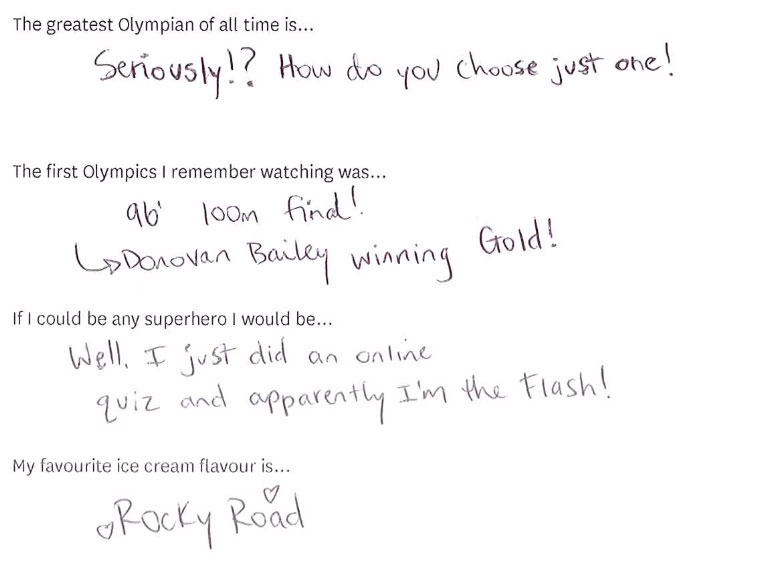 The greatest Olympian of all time is...
Seriously!? How do you choose just one!
The first Olympics I remember watching was...
96' 100m final!
↳Donovan Bailey winning Gold!
If I could be any superhero I would be...
Well, I just did an online
quiz and apparently I'm the Flash!
My favourite ice cream flavour is...
♡Rocky Road♡